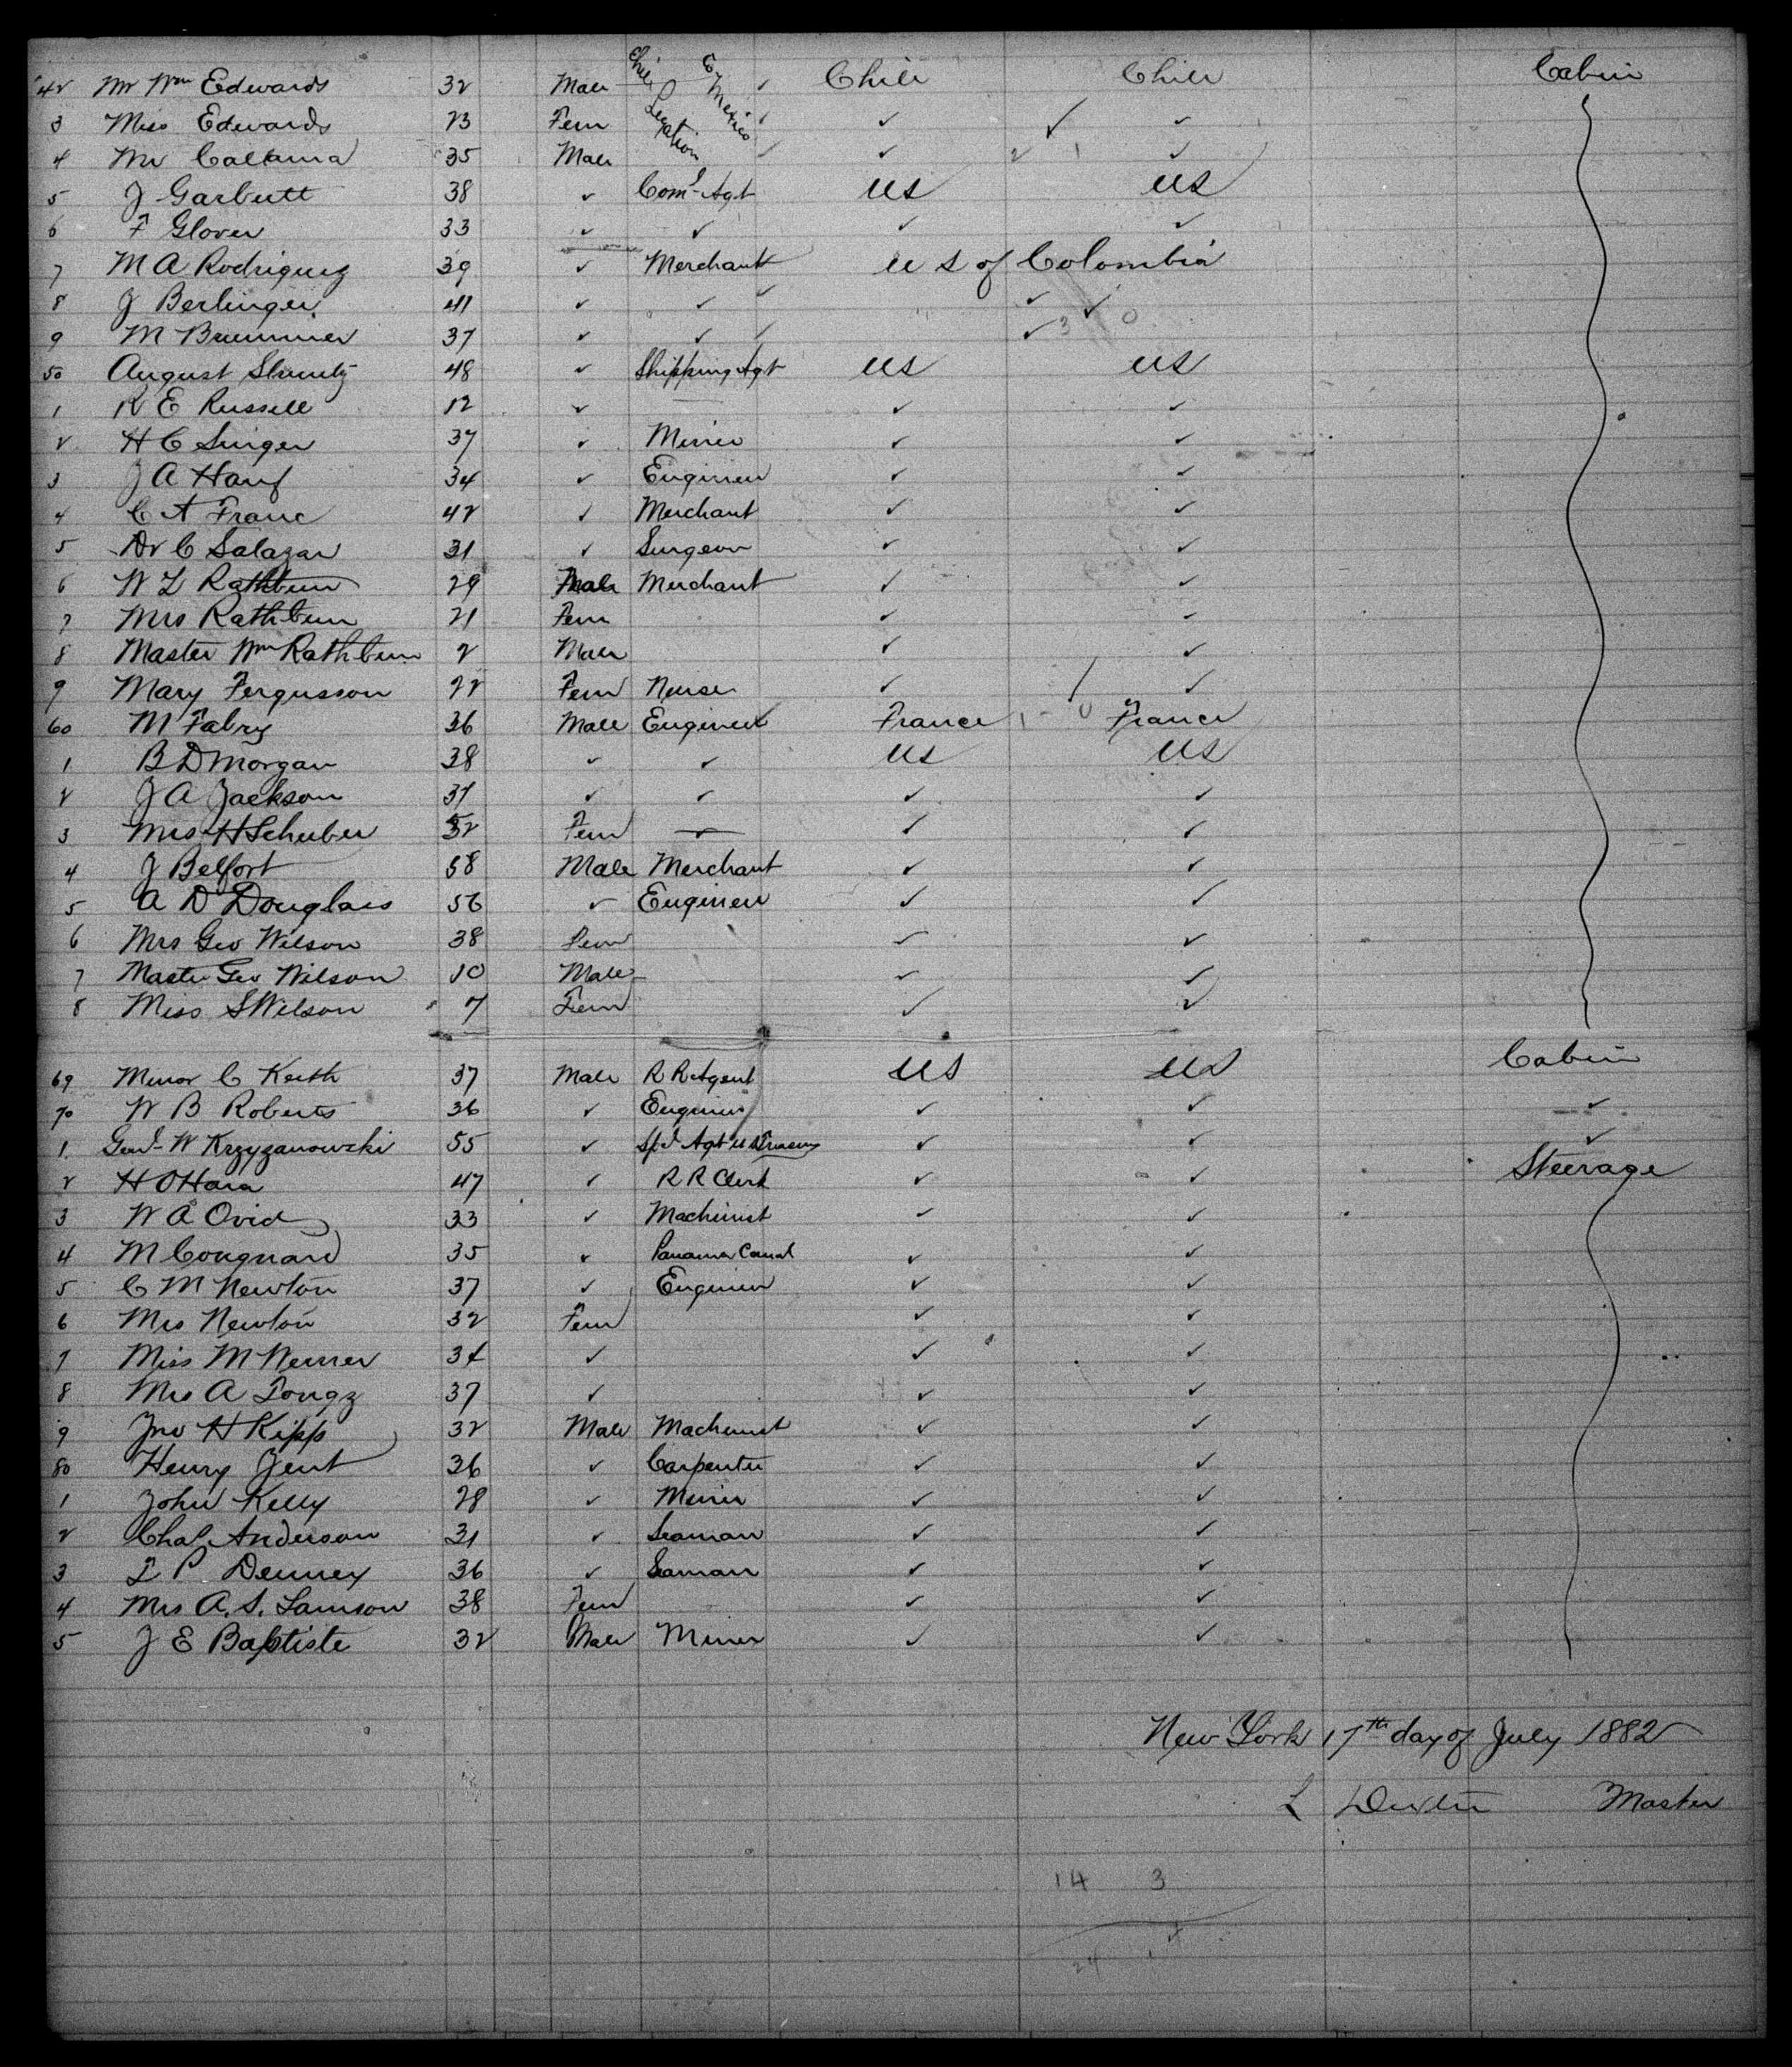 42 Mr Wm Edwards 32 Male Chili Legation to Mexico ✓ Chili Chili Cabin
3 Miss Edwards 23 Fem ✓ ✓ ✓
4 Mr 35 Male ✓ ✓ 2 1 ✓
5 J Garbutt 38 ✓ Coml Agt US US
6 F Glover 33 ✓ ✓ ✓ ✓
7 M A Rodriguez 39 ✓ Merchant U S of Colombia
8 J Berlinger 41 ✓ ✓ ✓ ✓
9 M 37 ✓ ✓ ✓ 3 0
50 August 48 ✓ Shipping Agt US US
1 R E Russell 12 ✓ — ✓ ✓
2 H C Singer 37 ✓ Miner ✓ ✓
3 J A 34 ✓ Engineer ✓ ✓
4 C A Franc 42 ✓ Merchant ✓ ✓
5 Dr C Salazar 31 ✓ Surgeon ✓ ✓
6 W L Rathbun 29 Male Merchant ✓ ✓
7 Mrs Rathbun 21 Fem ✓ ✓
8 Master Wm Rathbun 2 Male ✓ ✓
9 Mary Fergusson 22 Fem Nurse ✓ ✓
60 M Fabry 36 Male Engineer France 1 - 0 France
1 B D Morgan 38 ✓ ✓ US US
2 J A Jackson 37 ✓ ✓ ✓ ✓
3 Mrs H Schuber 32 Fem ✓ ✓
4 J Belfort 58 Male Merchant ✓ ✓
5 A D Douglass 56 ✓ Engineer ✓ ✓
6 Mrs Geo Wilson 38 Fem ✓ ✓
7 Master Geo Wilson 10 Male ✓ ✓
8 Miss S Wilson 7 Fem ✓ ✓
69 Minor C Keith 37 Male R R Agent US US Cabin
70 W B Roberts 36 ✓ Engineer ✓ ✓ ✓
1 Genl W Krzyzanowski 55 ✓ Spl Agt US Treasury ✓ ✓ ✓
2 H O'Hara 47 ✓ R R Clerk ✓ ✓ Steerage
3 W A Ovid 33 ✓ Machinist ✓ ✓
4 M Cougnard 35 ✓ Panama Canal ✓ ✓
5 C M Newton 37 ✓ Engineer ✓ ✓
6 Mrs Newton 32 Fem ✓ ✓
7 Miss M Werner 34 ✓ ✓ ✓
8 Mrs A 37 ✓ ✓ ✓
9 Jno H Kipp 32 Male Machinist ✓ ✓
80 Henry Jent 36 ✓ Carpenter ✓ ✓
1 John Kelly 28 ✓ Miner ✓ ✓
2 Chas Anderson 31 ✓ Seaman ✓ ✓
3 T P Denney 36 ✓ Seaman ✓ ✓
4 Mrs A. S. Lamson 38 Fem ✓ ✓
5 J E Baptiste 32 Male Miner ✓ ✓
New York 17th day of July 1882
L Dexter Master
14 3
24